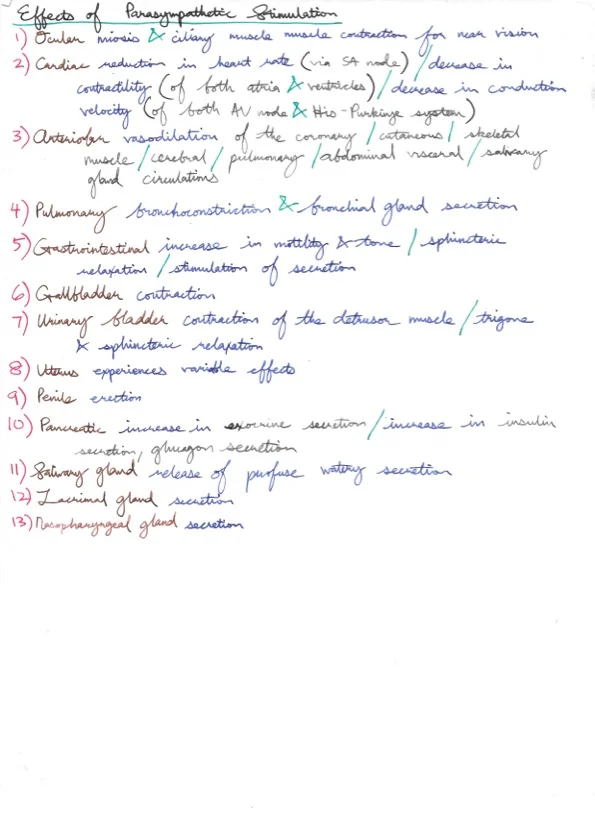 Effects of Parasympathetic Stimulation
1) Ocular miosis & ciliary muscle muscle contraction for near vision
2) Cardiac reduction in heart rate (via SA node) / decrease in
contractility (of both atria & ventricles) / decrease in conduction
velocity (of both AV node & His-Purkinje system)
3) Arteriolar vasodilation of the coronary / cutaneous / skeletal
muscle / cerebral / pulmonary / abdominal visceral / salivary
gland circulations
4) Pulmonary bronchoconstriction & bronchial gland secretion
5) Gastrointestinal increase in motility & tone / sphincteric
relaxation / stimulation of secretion
6) Gallbladder contraction
7) Urinary bladder contraction of the detrusor muscle / trigone
& sphincteric relaxation
8) Uterus experiences variable effects
9) Penile erection
10) Pancreatic increase in exocrine secretion / increase in insulin
secretion, glucagon secretion
11) Salivary gland release of profuse watery secretion
12) Lacrimal gland secretion
13) Nasopharyngeal gland secretion